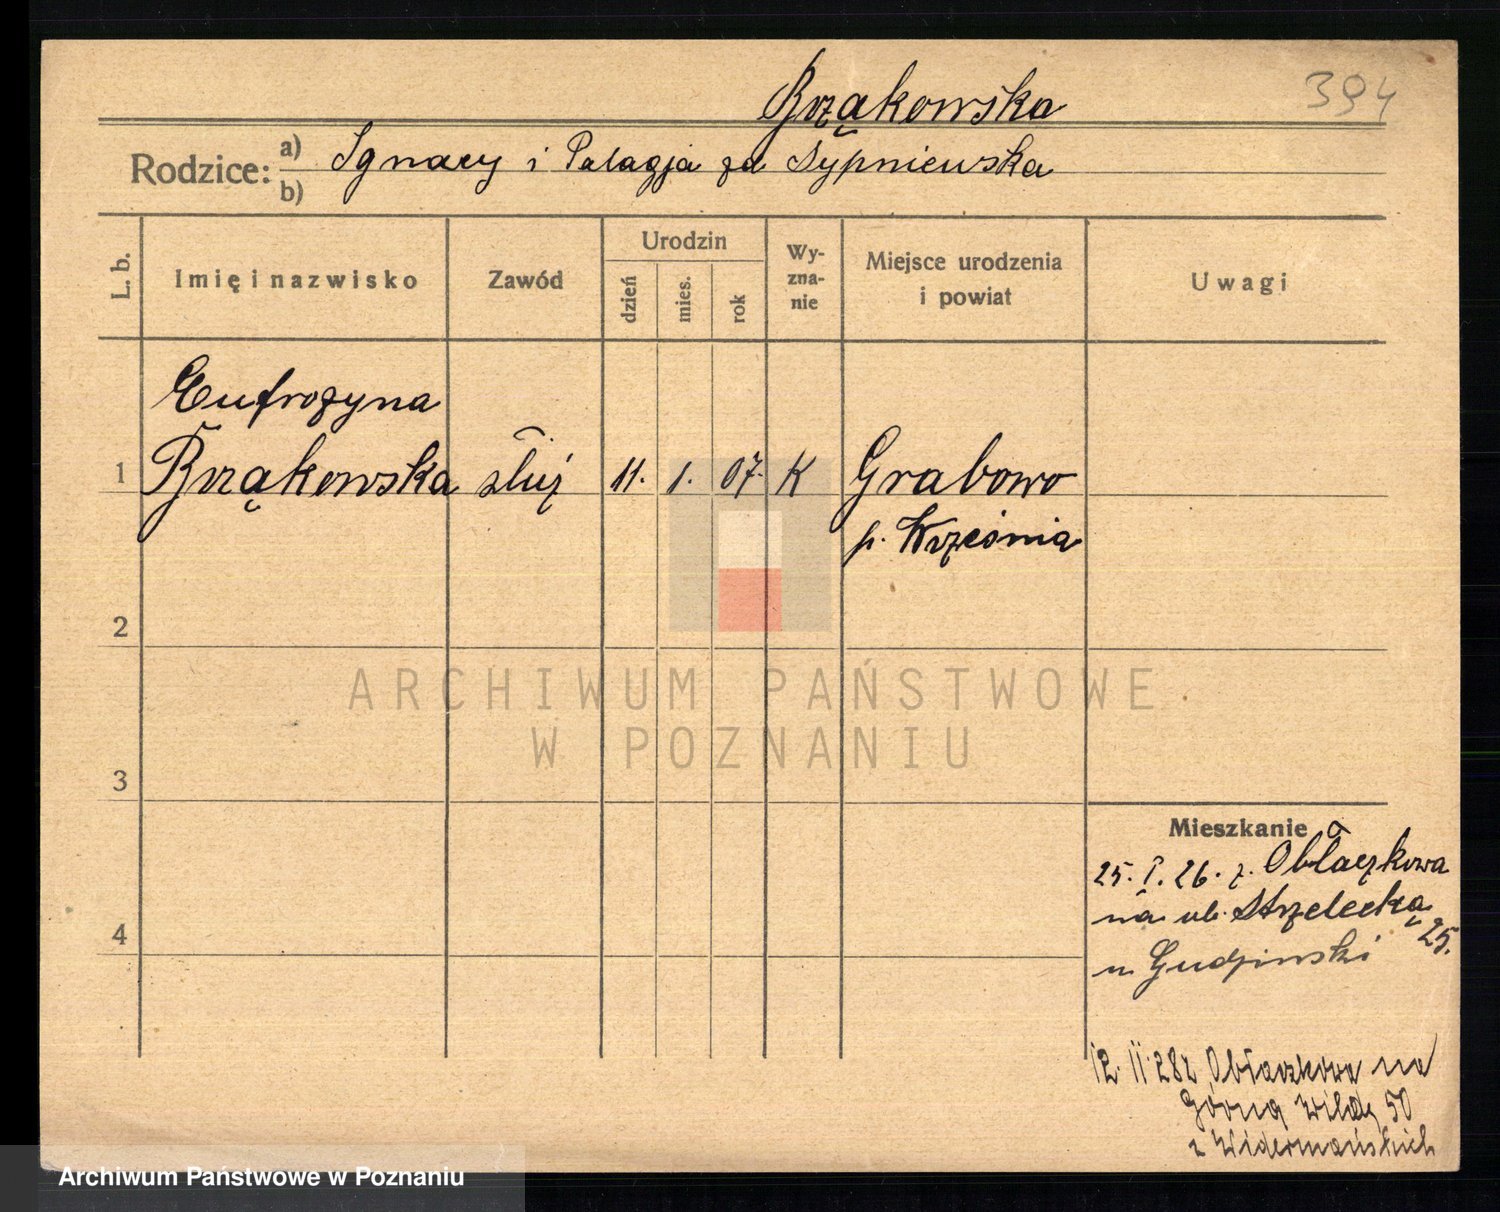 Brząkowska 394
Rodzice: a) Ignacy i Pelagja zd Sypniewska
b)
L. b. Imię i nazwisko Zawód Urodzin dzień mies. rok Wy-zna-nie Miejsce urodzenia i powiat Uwagi
Eufrozyna
1 Brząkowska służ 11. 1. 07. K Grabowo
p. Września
2
ARCHIWUM PAŃSTWOWE
W POZNANIU
3
Mieszkanie
25. I. 26. z. Obłaczkowa
na ul. Strzelecką 25.
4
u Gudzinski
12 II 28 z Obłaczkowa na
Górną Wildę 50
Archiwum Państwowe w Poznaniu